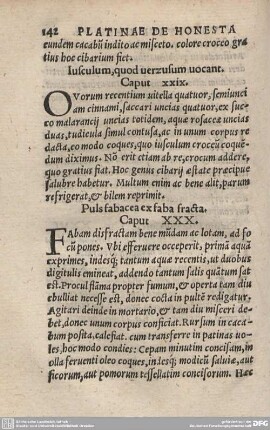 142 PLATINAE DE HONESTA
eundem cacabũ indito ac misceto. colore crocco gra
tius hoc cibarium fiet.
Iusculum, quod uerzusum uocant.
Caput xxix.
OVorum recentium uitella quatuor, semiunci
am cinnami, saccari uncias quatuor, ex suc
co malarancij uncias totidem, aquæ rosaceæ uncias
duas, tudicula simul contusa, ac in unum corpus re
dacta, co modo coques, quo iusculum croceũ coqué
dum diximus. Nõ erit etiam ab re, crocum addere,
quo gratius fiat. Hoc genus cibarij æstate præcipue
salubre habetur. Multum enim ac bene alit, parum
refrigerat, & bilem reprimit.
Puls fabacea ex faba fracta.
Caput XXX.
FAbam disfractam bene mũdam ac lotam, ad fo
cũ pones. Vbi efferuere occeperit, primã aquã
exprimes, indesq; tantum aquæ recentis, ut duobus
digitulis emineat, addendo tantum salis quãtum sat
est. Procul flãma propter fumum, & operta tam diu
ebulliat necesse est, donec cocta in pultẽ redigatur,
Agitari deinde in mortario, & tam diu misceri de-
bet, donec unum corpus conficiat. Rursum in caca-
bum posita, calefiat. cum transferre in patinas uo-
les, hoc modo condies: Cepam minutim concisam, in
olla feruenti oleo coques, indesq; modicũ saluiæ, aut
ficorum, aut pomorum tessellatim concisorum. Hæc